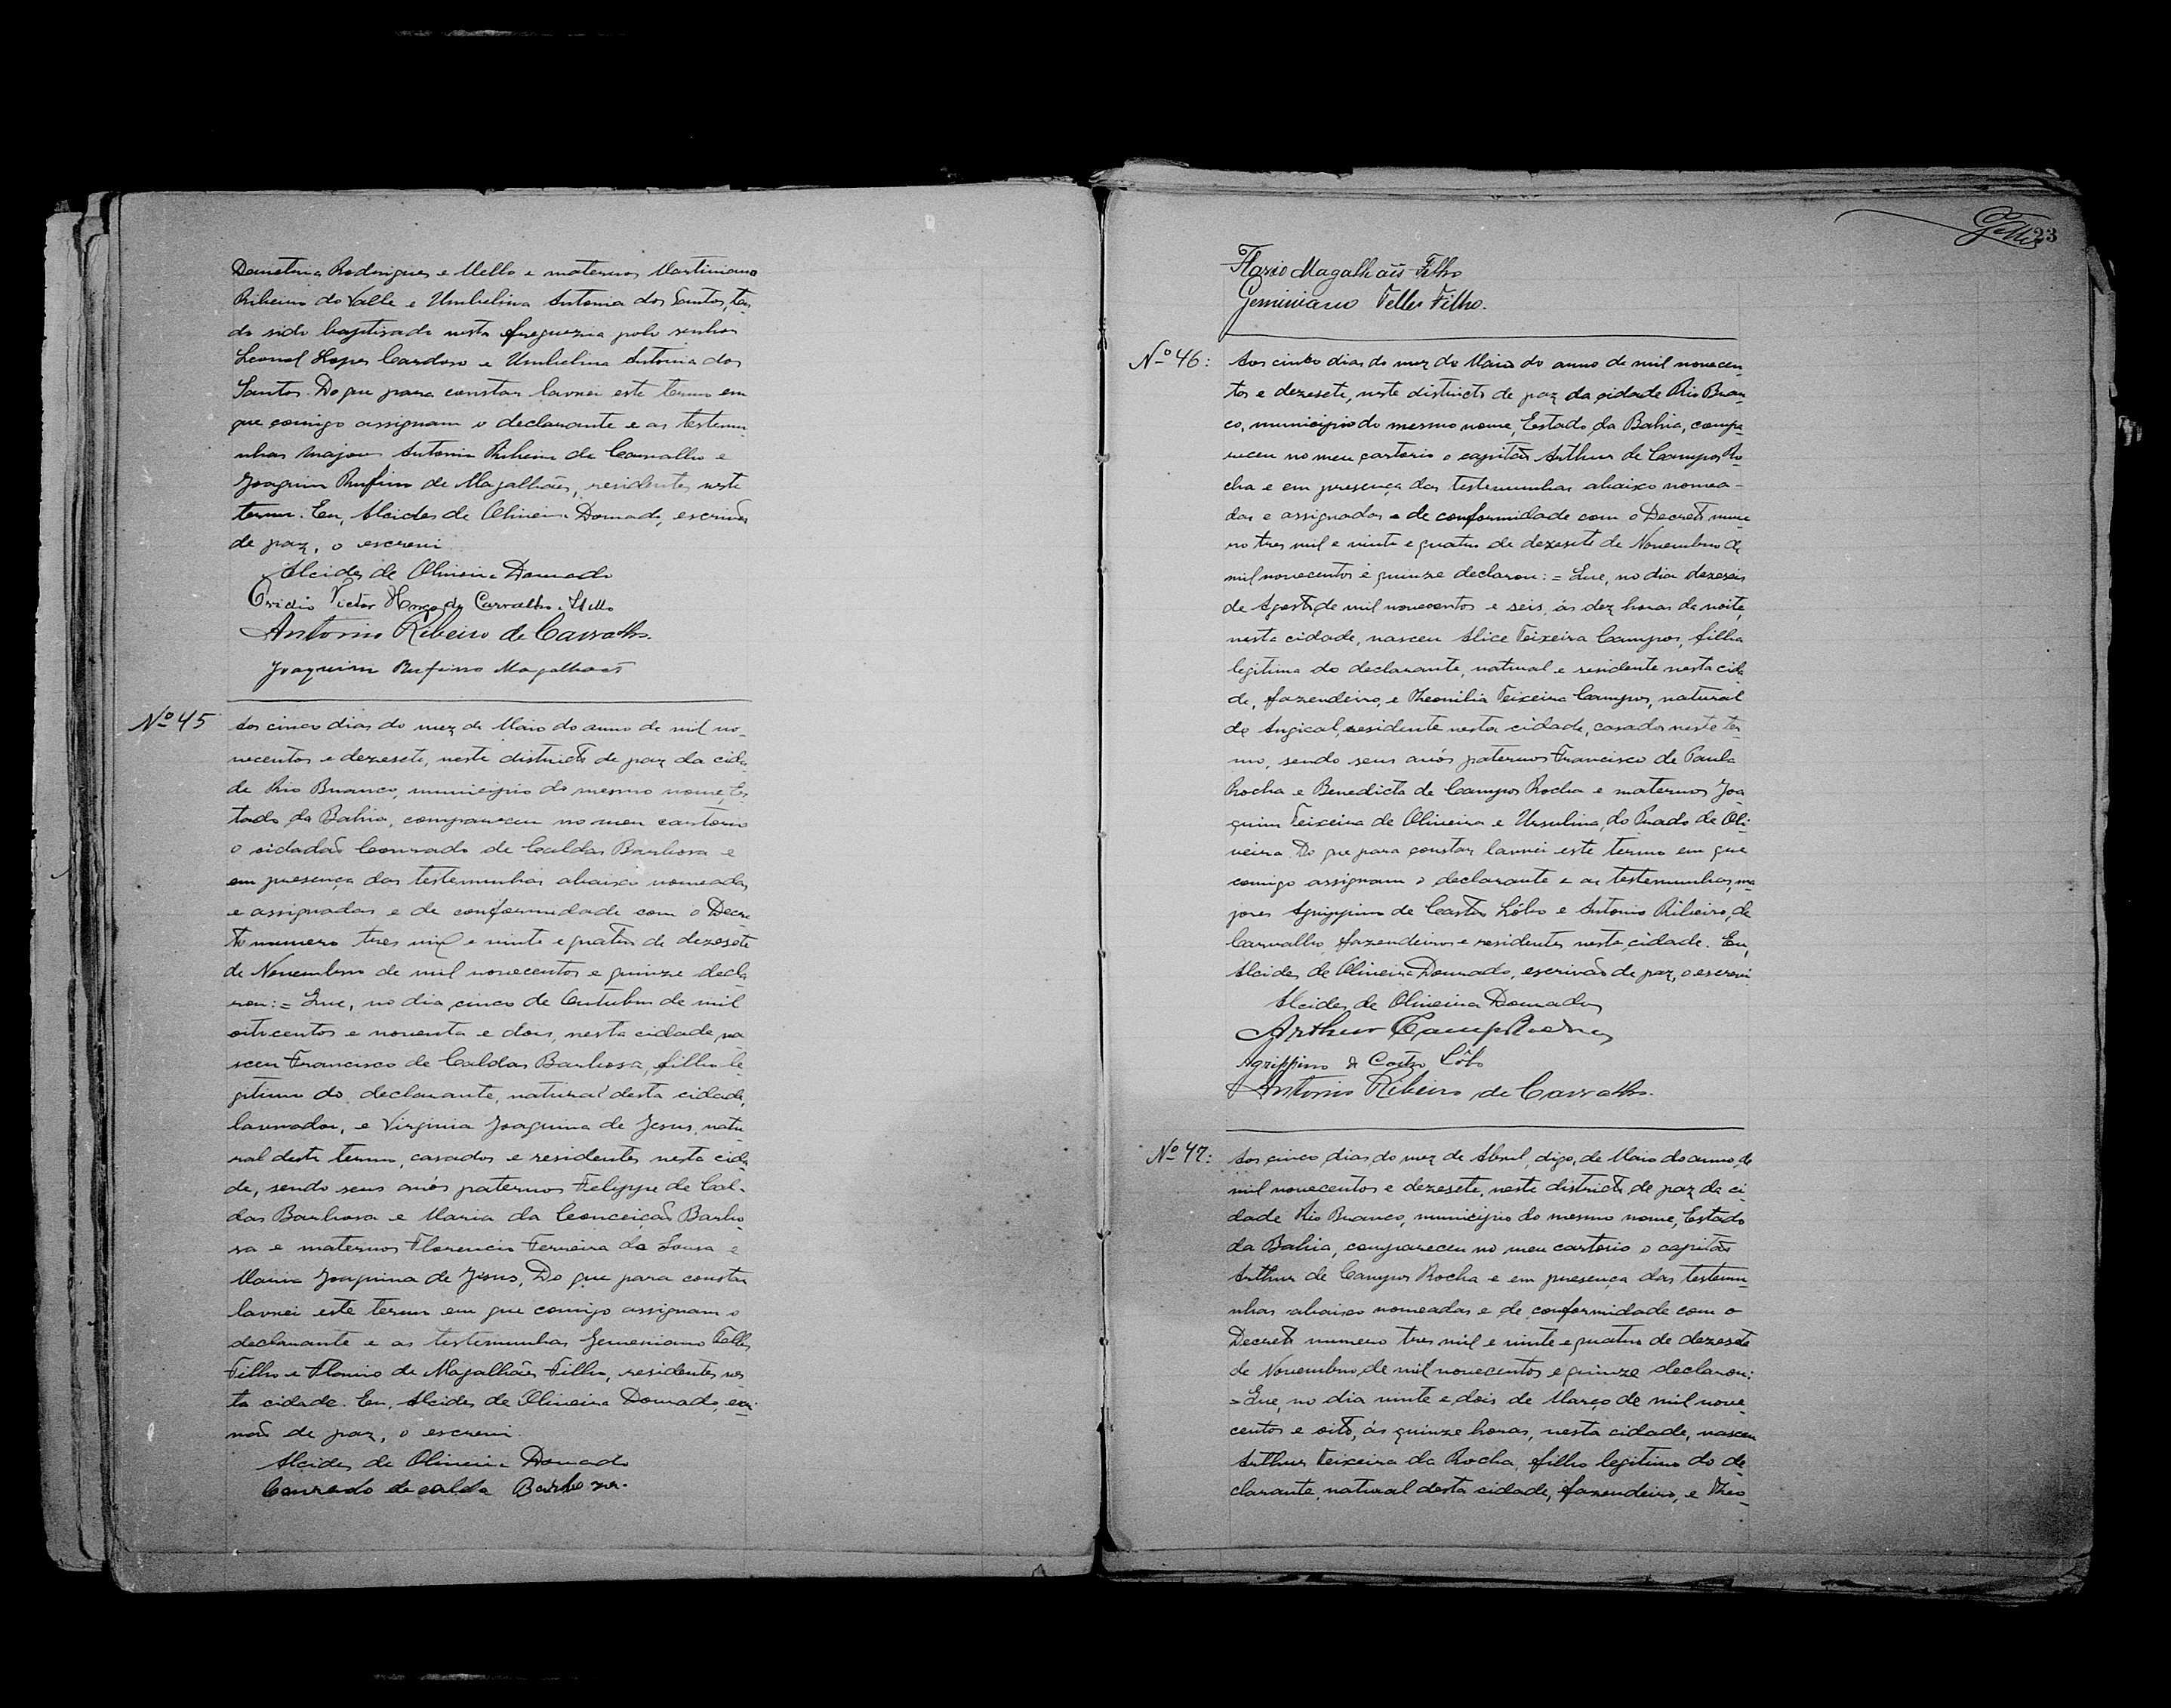 Demetria Rodrigues e Mello e maternos Martiniano
Ribeiro do Valle e Umbelina Antonia dos Santos, ten-
do sido baptisado nesta freguezia pelo senhor
Leonel Lopes Cardoso e Umbelina Antonia dos
Santos. Do que para constar lavrei este termo em
que comigo assignam o declarante e as testemu-
nhas majores Antonio Ribeiro de Carvalho e
Joaquim Rufino de Magalhães, residentes neste
termo. Eu, Alcides de Oliveira Dourado, escrivão
de paz, o escrevi
Alcides de Oliveira Dourado
Ovidio Victor Hugo de Carvalho Mello
Antonio Ribeiro de Carvalho.
Joaquim Rufino Magalhaes
Nº 45
Aos cinco dias do mez de Maio do anno de mil no-
vecentos e dezesete, neste districto de paz da cida-
de Rio Branco, municipio do mesmo nome, Es-
tado da Bahia, compareceu no meu cartorio
o cidadão Conrado de Caldas Barbosa e
em presença das testemunhas abaixo nomeadas
e assignadas e de conformidade com o Decre-
to numero tres mil e vinte e quatro de dezesete
de Novembro de mil novecentos e quinze decla-
rou: = Que, no dia cinco de Outubro de mil
oitocentos e noventa e dois, nesta cidade, na-
sceu Francisco de Caldas Barbosa, filho le-
gitimo do declarante, natural desta cidade,
lavrador, e Virginia Joaquina de Jesus, natu-
ral deste termo, casados e residentes nesta cida-
de, sendo seus avós paternos Felippe de Cal-
das Barbosa e Maria da Conceição Barbo-
sa e maternos Florencio Ferreira de Sousa e
Maria Joaquina de Jesus. Do que para constar
lavrei este termo em que comigo assignam o
declarante e as testemunhas Gemeniano Telles
Filho e Flavio de Magalhães Filho, residentes nes-
ta cidade. Eu, Alcides de Oliveira Dourado, escri-
vão de paz, o escrevi.
Alcides de Oliveira Dourado
Conrado de calda Barboza.
23
Flavio Magalhães Filho
Geminiano Telles Filho.
Nº 46:
Aos cinco dias do mez de Maio do anno de mil novecen-
tos e dezesete, neste districto de paz da cidade Rio Bran-
co, municipio do mesmo nome, Estado da Bahia, compa-
receu no meu cartorio o capitão Arthur de Campos Ro-
cha e em presença das testemunhas abaixo nomea-
das e assignadas e de conformidade com o Decreto nume-
ro tres mil e vinte e quatro de dezesete de Novembro de
mil novecentos e quinze declarou: = Que, no dia dezeseis
de Agosto de mil novecentos e seis, ás dez horas da noite,
nesta cidade, nasceu Alice Teixeira Campos, filha
legitima do declarante, natural e residente nesta cida-
de, fazendeiro, e Theonilia Teixeira Campos, natural
do Angical, residente nesta cidade, casados neste ter-
mo, sendo seus avós paternos Francisco de Paula
Rocha e Benedicta de Campos Rocha e maternos Joa-
quim Teixeira de Oliveira e Ursulina do Prado de Oli-
veira. Do que para constar lavrei este termo em que
comigo assignam o declarante e as testemunhas, ma-
jores Agrippino de Castro Lôbo e Antonio Ribeiro de
Carvalho, fazendeiros e residentes nesta cidade. Eu,
Alcides de Oliveira Dourado, escrivão de paz, o escrevi
Alcides de Oliveira Dourado
Arthur Campos Rocha
Agrippino de Castro Lôbo
Antonio Ribeiro de Carvalho.
Nº 47:
Aos cinco dias do mez de Abril, digo, de Maio do anno de
mil novecentos e dezesete, neste districto de paz da ci-
dade Rio Branco, municipio do mesmo nome, Estado
da Bahia, compareceu no meu cartorio o capitão
Arthur de Campos Rocha e em presença das testemu-
nhas abaixo nomeadas e de conformidade com o
Decreto numero tres mil e vinte e quatro de dezesete
de Novembro de mil novecentos e quinze declarou:
= Que, no dia vinte e dois de Março de mil nove-
centos e oito, ás quinze horas, nesta cidade, nasceu
Arthur Teixeira da Rocha, filho legitimo do de-
clarante, natural desta cidade, fazendeiro, e Theo-